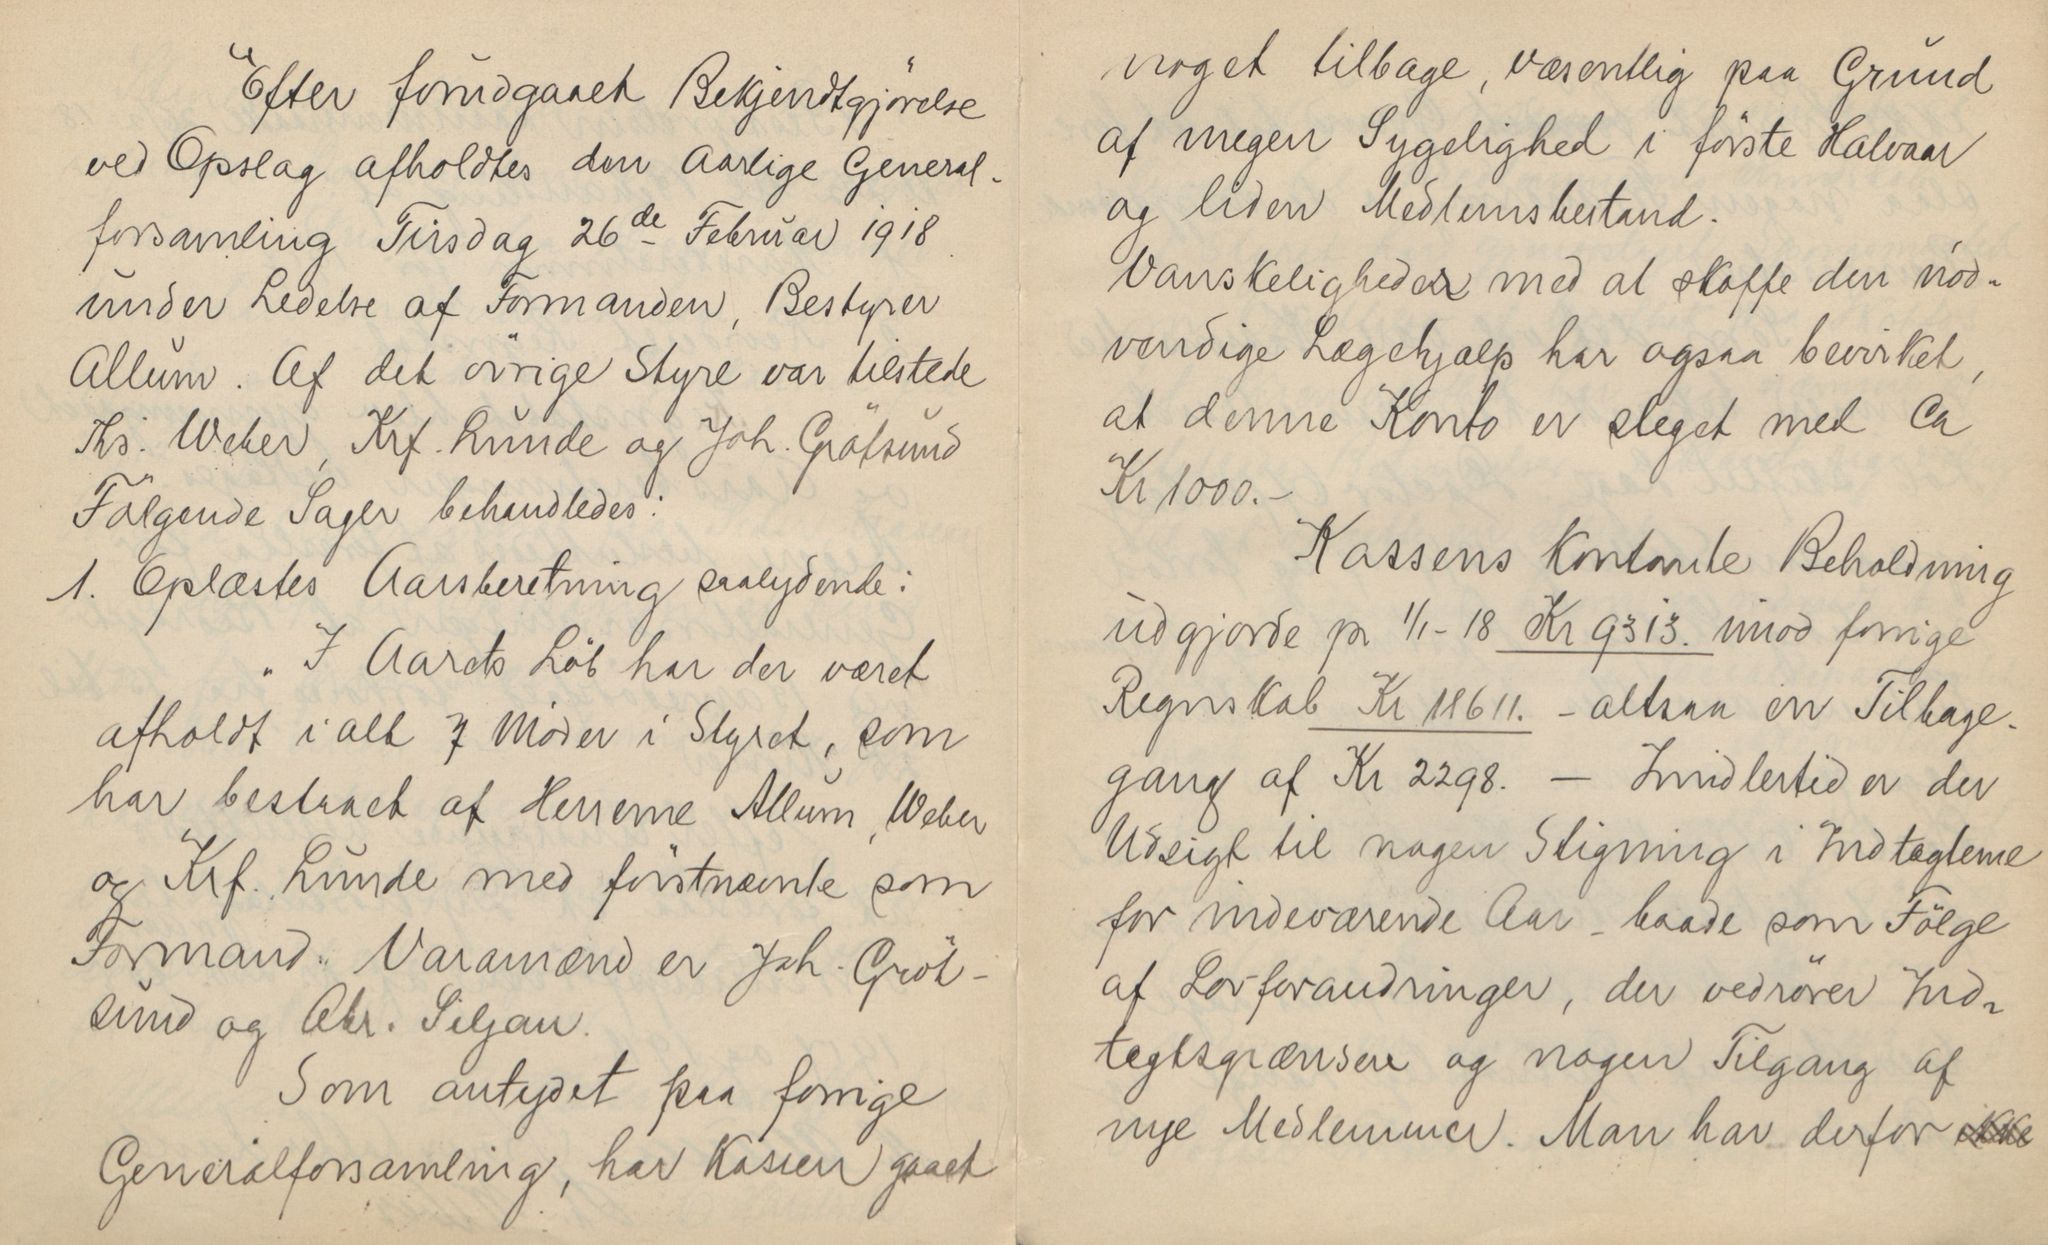 "Efter forudgaaet Bekjendtgjörelse
ved Opslag afholdtes den aarlige General-
forsamling Tirsdag 26de Februar 1918
under Ledelse af Formanden, Bestyrer
Allum. Af det övrige Styre var tilstede
Ths. Weber, Krf. Lunde og Joh. Grötsund
Fölgende Sager behandledes:
1. Oplæstes Aarsberetning saalydende:
"I Aarets Löb har der været
afholdt i alt 7 Möder i Styret, som
har bestaaet af Herrerne Allum, Weber
og Krf. Lunde med förstnævnte som
Formand. Varamænd er Joh. Gröt-
sund og Abr. Siljan.
Som antydet paa forrige
Generalforsamling, har Kassen gaaet
noget tilbage, væsentlig paa Grund
af megen Sygelighed i förste Halvaar
og liden Medlemsbestand.
Vanskeligheder med at skaffe den nöd-
vendige Lægehjælp har ogsaa bevirket,
at denne Konto er steget med Ca
Kr 1000.-
Kassens kontante Beholdning
udgjorde pr 1/1-18 Kr 9313. imod forrige
Regnskab Kr 11611. - altsaa en Tilbage-
gang af Kr 2298. — Imidlertid er der
Udsigt til nogen Stigning i Indtægterne
for indeværende Aar - baade som Fölge
af Lovforandringer, der vedrörer Ind-
tægtsgrænsen og nogen Tilgang af
nye Medlemmer. Man har derfor ikke